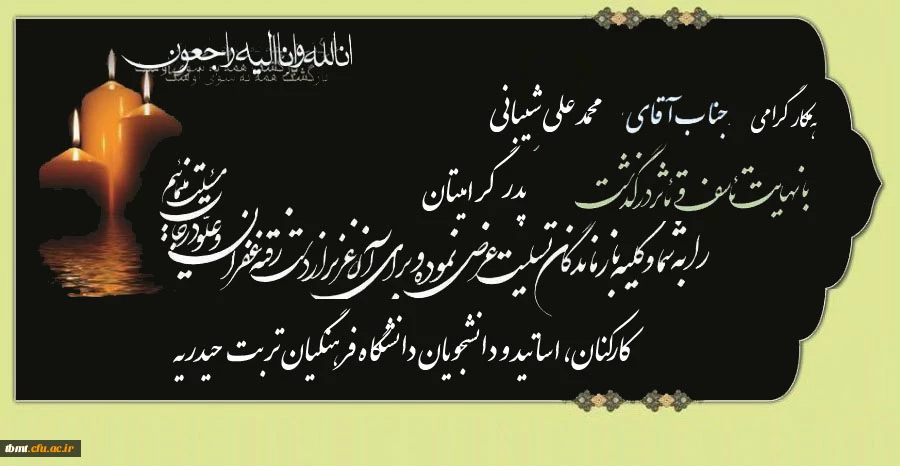 انا لله و انا الیه راجعون
بازگشت همه به سوی اوست
همکار گرامی جناب آقای محمد علی شیبانی
با نهایت تاسف و تاثر درگذشت پدر گرامیتان
را به شما و کلیه بازماندگان تسلیت عرض نموده و برای آن عزیز از دست رفته غفران و علو درجات مسئلت مینمائیم
کارکنان، اساتید و دانشجویان دانشگاه فرهنگیان تربت حیدریه
tbmt.cfu.ac.ir